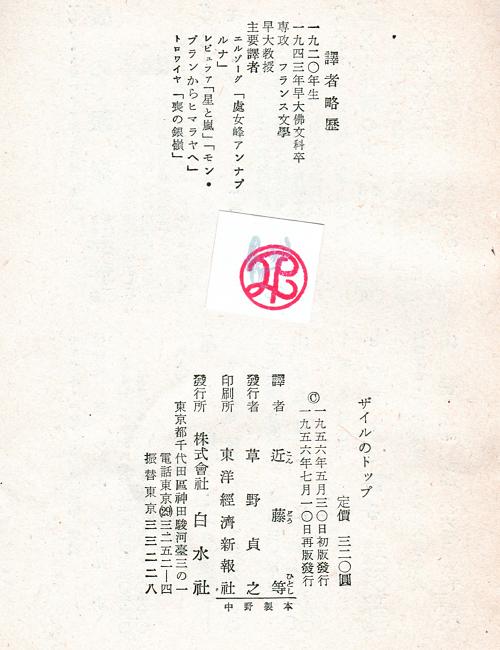 譯者略歷
一九二〇年生
一九四三年早大佛文科卒
専攻 フランス文學
早大教授
主要譯者
エルゾーグ「處女峰アンナプ
ルナ」
レビュファ「星と嵐」「モン・
ブランからヒマラヤへ」
トロワイヤ「喪の銀嶺」
ザイルのトップ
定價 三二〇圓
Ⓒ一九五六年五月三〇日初版發行
一九五六年七月一〇日再版發行
譯者 近藤等
こん どう ひとし
發行者 草野貞之
印刷所 東洋經濟新報社
發行所 株式會社 白水社
東京都千代田區神田駿河臺三の一
電話東京(29)三二五二―四
振替東京三三二二八
中野製本